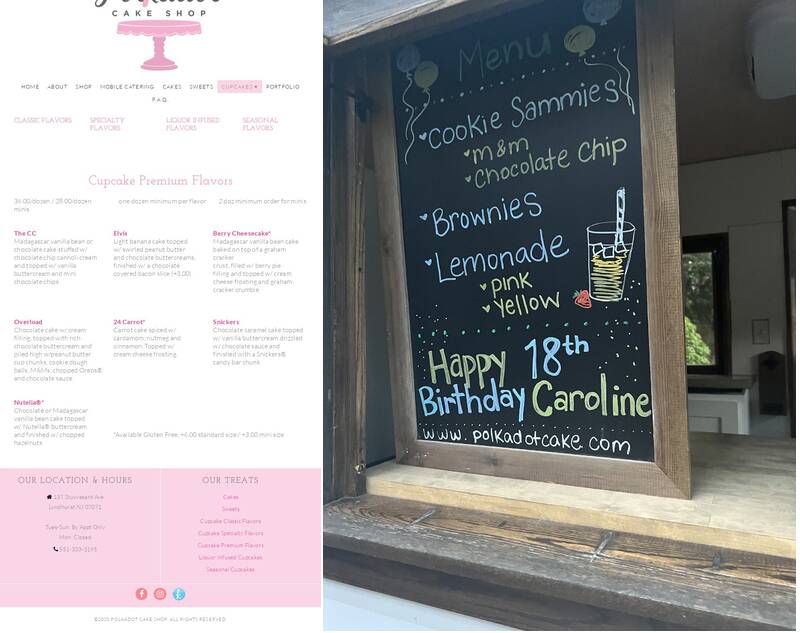 CAKE SHOP
HOME ABOUT SHOP MOBILE CATERING CAKES SWEETS CUPCAKES ▾ PORTFOLIO
F.A.Q.
CLASSIC FLAVORS
SPECIALTY
FLAVORS
LIQUOR INFUSED
FLAVORS
SEASONAL
FLAVORS
Cupcake Premium Flavors
one dozen minimum per flavor
2 doz minimum order for minis
minis
The CC
Madagascar vanilla bean or
chocolate cake stuffed w/
chocolate chip cannoli cream
and topped w/ vanilla
buttercream and mini
chocolate chips
Elvis
Light banana cake topped
w/ swirled peanut butter
and chocolate buttercreams,
finished w/ a chocolate
covered bacon slice (+3.00)
Berry Cheesecake*
Madagascar vanilla bean cake
baked on top of a graham
cracker
crust, filled w/ berry pie
filling and topped w/ cream
cheese frosting and graham
cracker crumble
Overload
Chocolate cake w/ cream
filling, topped with rich
chocolate buttercream and
piled high w/peanut butter
cup chunks, cookie dough
balls, M&Ms, chopped Oreos®
and chocolate sauce
24 Carrot*
Carrot cake spiced w/
cardamom, nutmeg and
cinnamon. Topped w/
cream cheese frosting.
Snickers
Chocolate caramel cake topped
w/ vanilla buttercream drizzled
w/ chocolate sauce and
finished with a Snickers®
candy bar chunk
Nutella®*
Chocolate or Madagascar
vanilla bean cake topped
w/ Nutella® buttercream
and finished w/ chopped
hazelnuts
*Available Gluten Free, +6.00 standard size / +3.00 mini size
OUR LOCATION & HOURS
Lyndhurst NJ 07071
Tues-Sun: By Appt Only
Mon: Closed
OUR TREATS
Cakes
Sweets
Cupcake Classic Flavors
Cupcake Specialty Flavors
Cupcake Premium Flavors
Liquor Infused Cupcakes
Seasonal Cupcakes
POLKADOT CAKE SHOP. ALL RIGHTS RESERVED.
Menu
Cookie Sammies
m&m
Chocolate Chip
Brownies
Lemonade
pink
yellow
Happy 18th
Birthday Caroline
www.polkadotcake.com